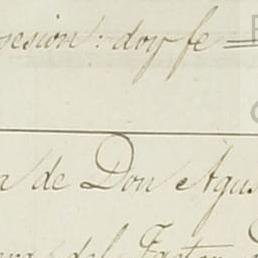 sesion: doy fe
a de Don Agus
del Factor